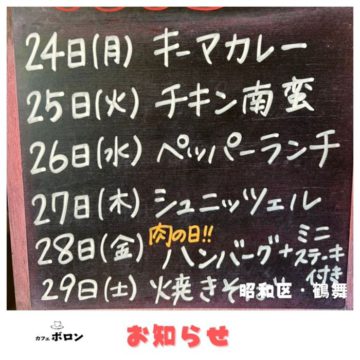 24日(月) キーマカレー
25日(火) チキン南蛮
26日(水) ペッパーランチ
27日(木) シュニッツェル
肉の日!!
28日(金) ハンバーグ+ミニステーキ付き
29日(土) 焼きそ
昭和区・鶴舞
カフェ ポロン
お知らせ